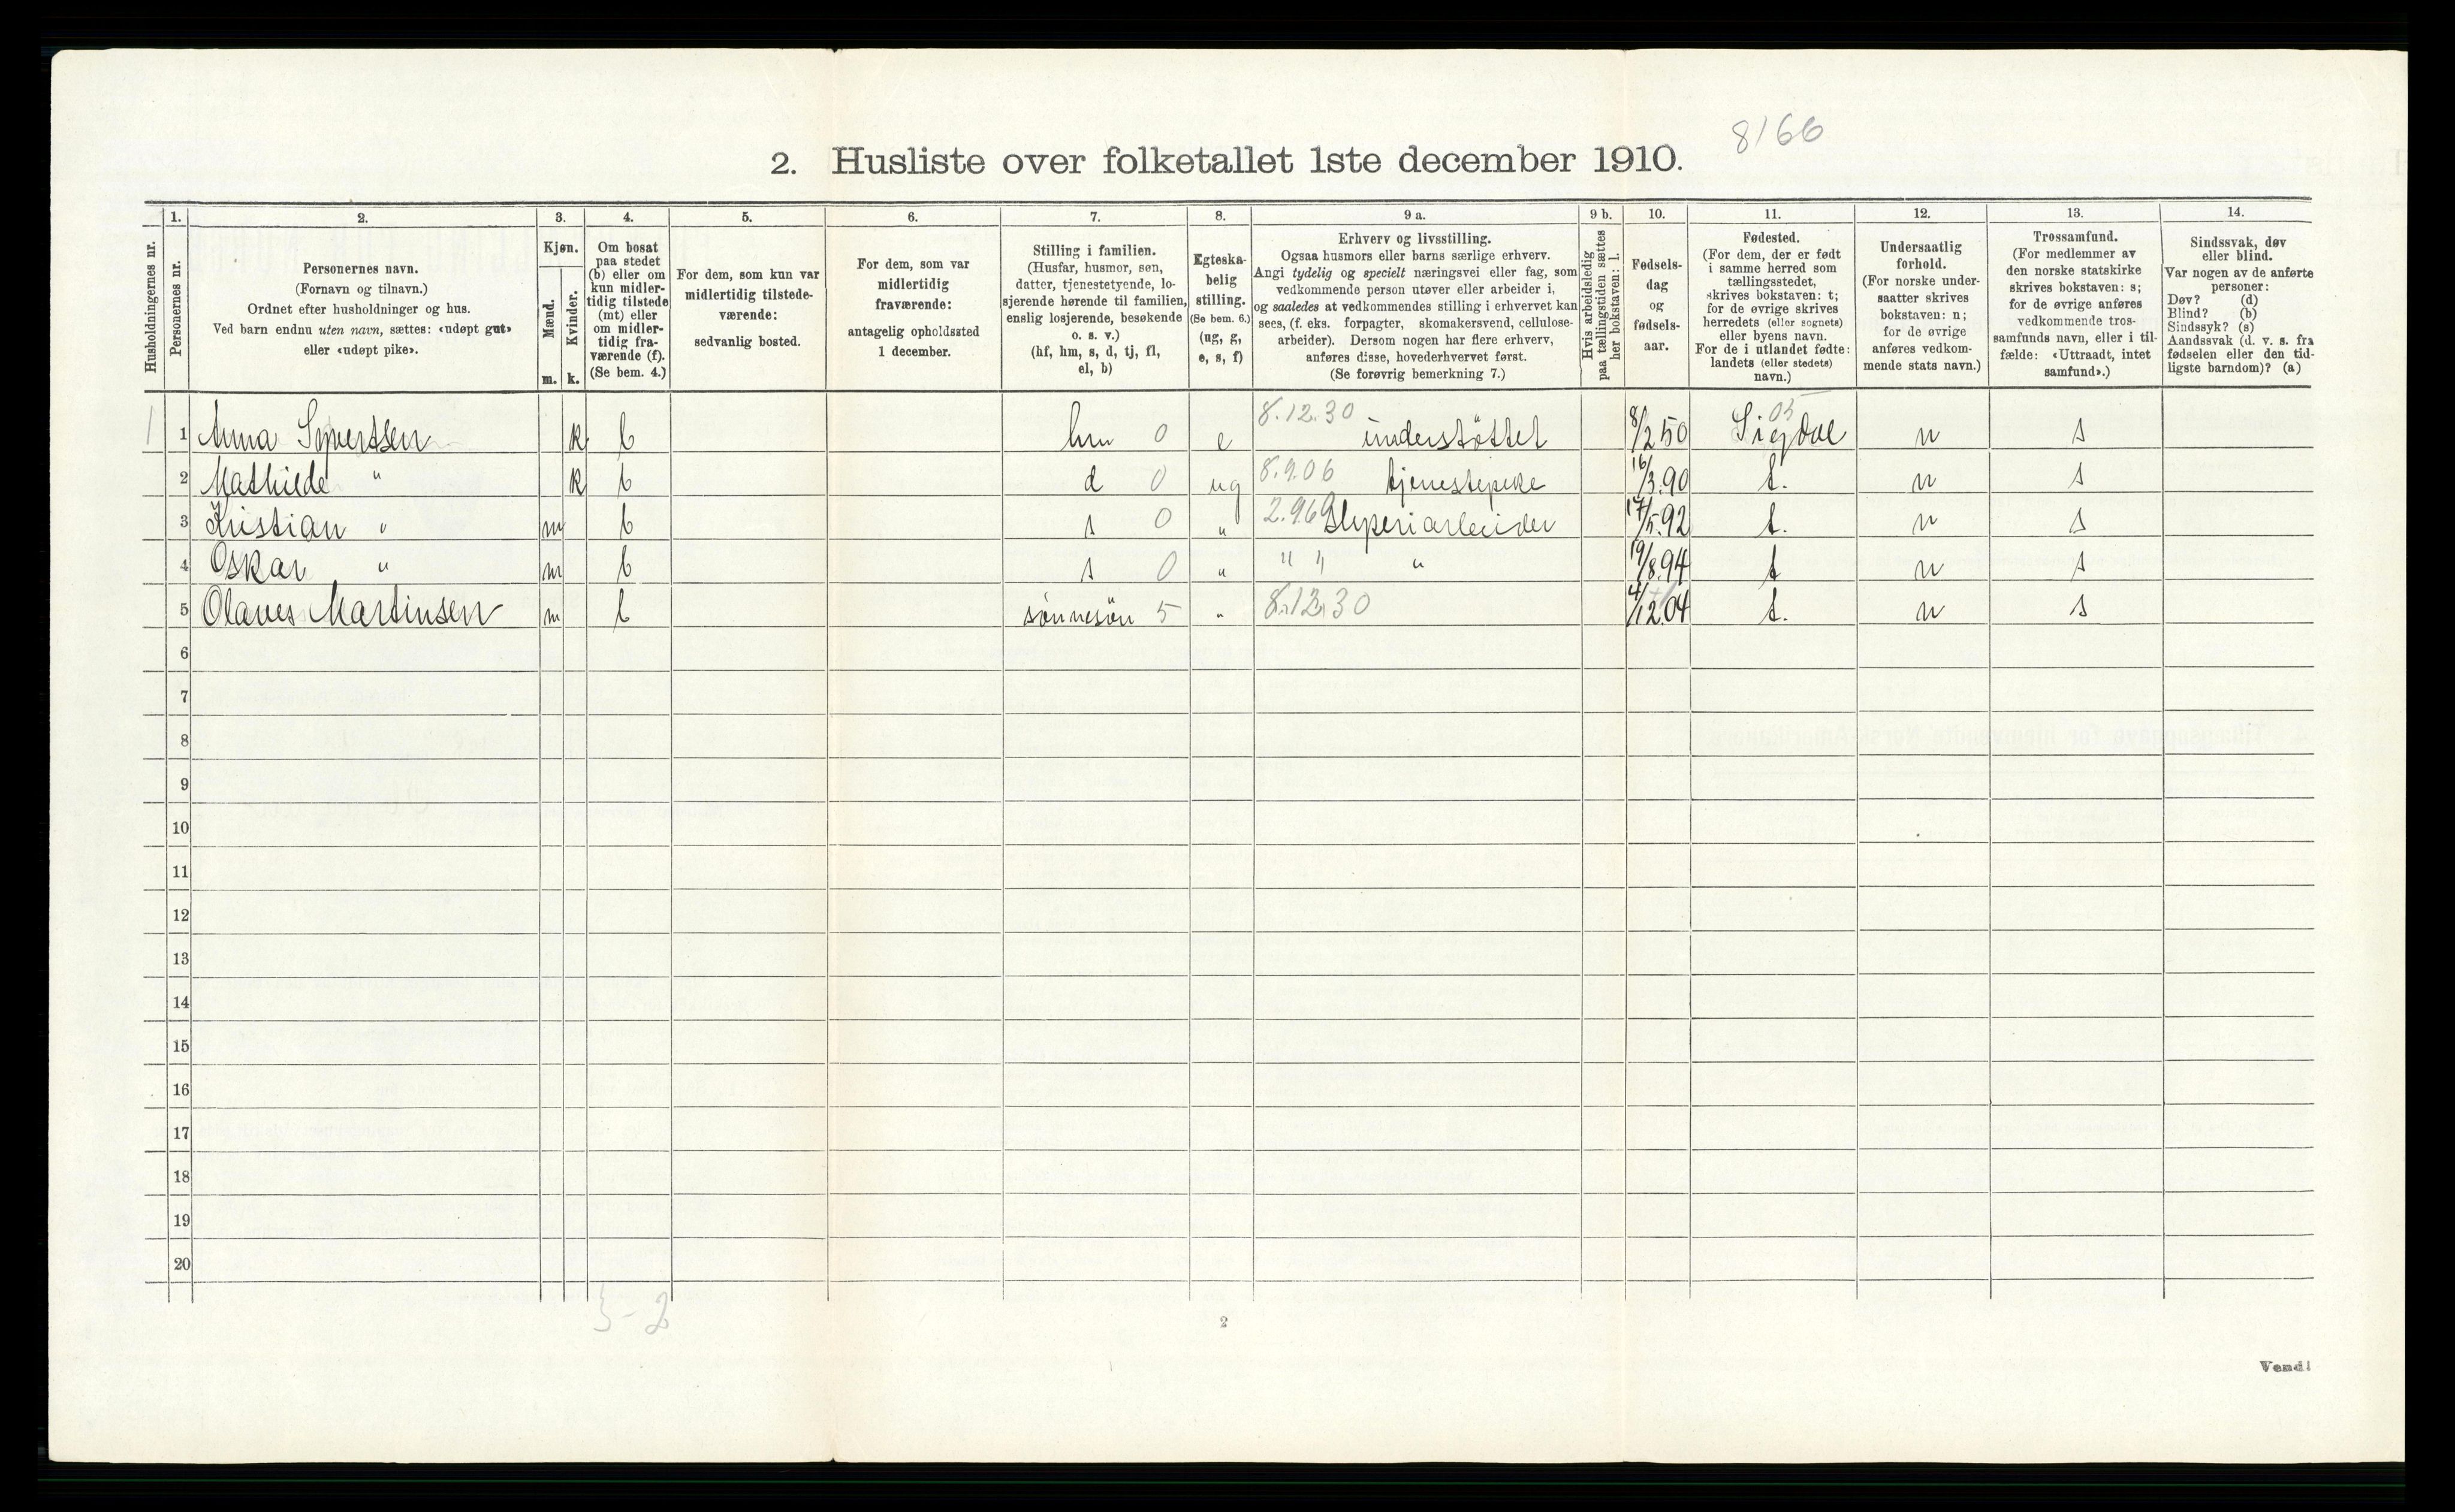 8166
2. Husliste over folketallet 1ste december 1910.
Husholdningernes nr.
1.
Personernes nr.
2.
Personernes navn.
(Fornavn og tilnavn.)
Ordnet efter husholdninger og hus.
Ved barn endnu uten navn, sættes: «udøpt gut»
eller «udøpt pike».
3.
Kjøn.
Mænd.
Kvinder.
m. k.
4.
Om bosat
paa stedet
(b) eller om
kun midler-
tidig tilstede
(mt) eller
om midler-
tidig fra-
værende (f).
(Se bem. 4.)
5.
For dem, som kun var
midlertidig tilstede-
værende:
sedvanlig bosted.
6.
For dem, som var
midlertidig
fraværende:
antagelig opholdssted
1 december.
7.
Stilling i familien.
(Husfar, husmor, søn,
datter, tjenestetyende, lo-
sjerende hørende til familien,
enslig losjerende, besøkende
o. s. v.)
(hf, hm, s, d, tj, fl,
el, b)
8.
Egteska-
belig
stilling.
(Se bem. 6.)
(ug, g,
e, s, f)
9 a.
Erhverv og livsstilling.
Ogsaa husmors eller barns særlige erhverv.
Angi tydelig og specielt næringsvei eller fag, som
vedkommende person utøver eller arbeider i,
og saaledes at vedkommendes stilling i erhvervet kan
sees, (f. eks. forpagter, skomakersvend, cellulose-
arbeider). Dersom nogen har flere erhverv,
anføres disse, hovederhvervet først.
(Se forøvrig bemerkning 7.)
9 b.
Hvis arbeidsledig
paa tællingstiden sættes
her bokstaven: l.
10.
Fødsels-
dag
og
fødsels-
aar.
11.
Fødested.
(For dem, der er født
i samme herred som
tællingsstedet,
skrives bokstaven: t;
for de øvrige skrives
herredets (eller sognets)
eller byens navn.
For de i utlandet fødte:
landets (eller stedets)
navn.)
12.
Undersaatlig
forhold.
(For norske under-
saatter skrives
bokstaven: n;
for de øvrige
anføres vedkom-
mende stats navn.)
13.
Trossamfund.
(For medlemmer av
den norske statskirke
skrives bokstaven: s;
for de øvrige anføres
vedkommende tros-
samfunds navn, eller i til-
fælde: «Uttraadt, intet
samfund».)
14.
Sindssvak, døv
eller blind.
Var nogen av de anførte
personer:
Døv? (d)
Blind? (b)
Sindssyk? (s)
Aandssvak (d. v. s. fra
fødselen eller den tid-
ligste barndom)? (a)
1 1 Anna Syvertsen k b hm 0 e 8.12.30 understöttet 8/2 50 Sigdal 05 n s
2 Mathilde " k b d 0 ug 8.9.06 tjenestepike 16/3.90 t. n s
3 Kristian " m b s 0 " 2.969 Sliperiarbeider 17/5.92 t. n s
4 Oskar " m b s 0 " " " " 19/8.94 t n s
5 Olaves Martinsen m b sönnesön 5 " 8.12.30 4/12.04 t. n s
6
7
8
9
10
11
12
13
14
15
16
17
18
19
20
3-2
2
Vend!